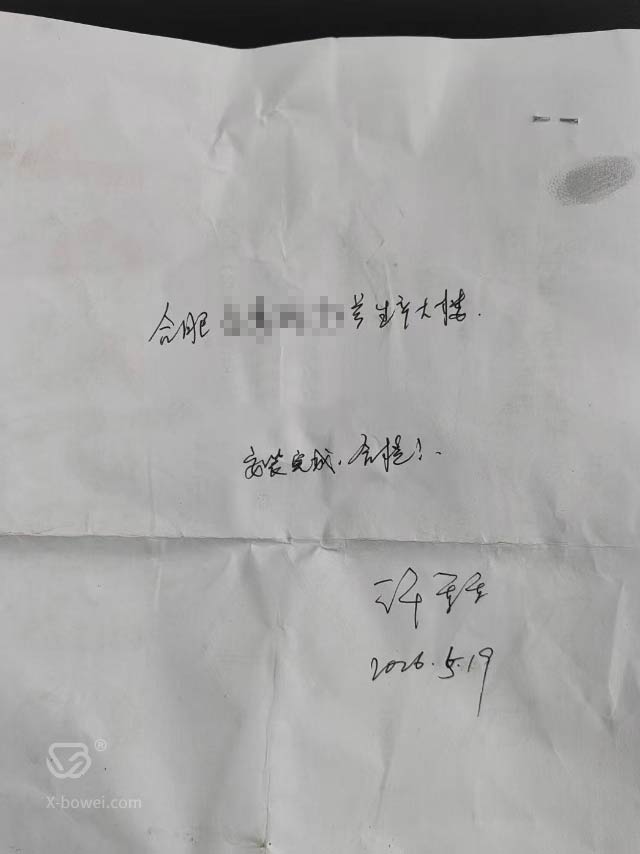 合肥 生产大楼.
安装完成,合格!.
许
2026.5.19
®
X-bowei.com